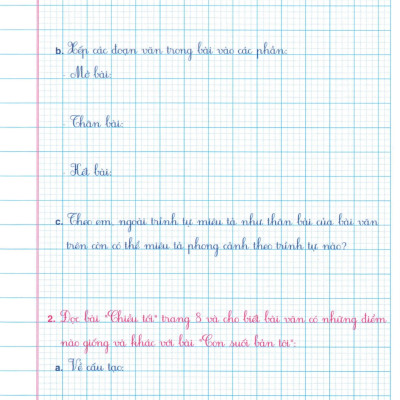 b. Xếp các đoạn văn trong bài vào các phần:
- Mở bài:
- Thân bài:
- Kết bài:
c. Theo em, ngoài trình tự miêu tả như thân bài của bài văn
trên còn có thể miêu tả phong cảnh theo trình tự nào?
2. Đọc bài "Chiều tối" trang 8 và cho biết bài văn có những điểm
nào giống và khác với bài "Con suối bản tôi":
a. Về cấu tạo: